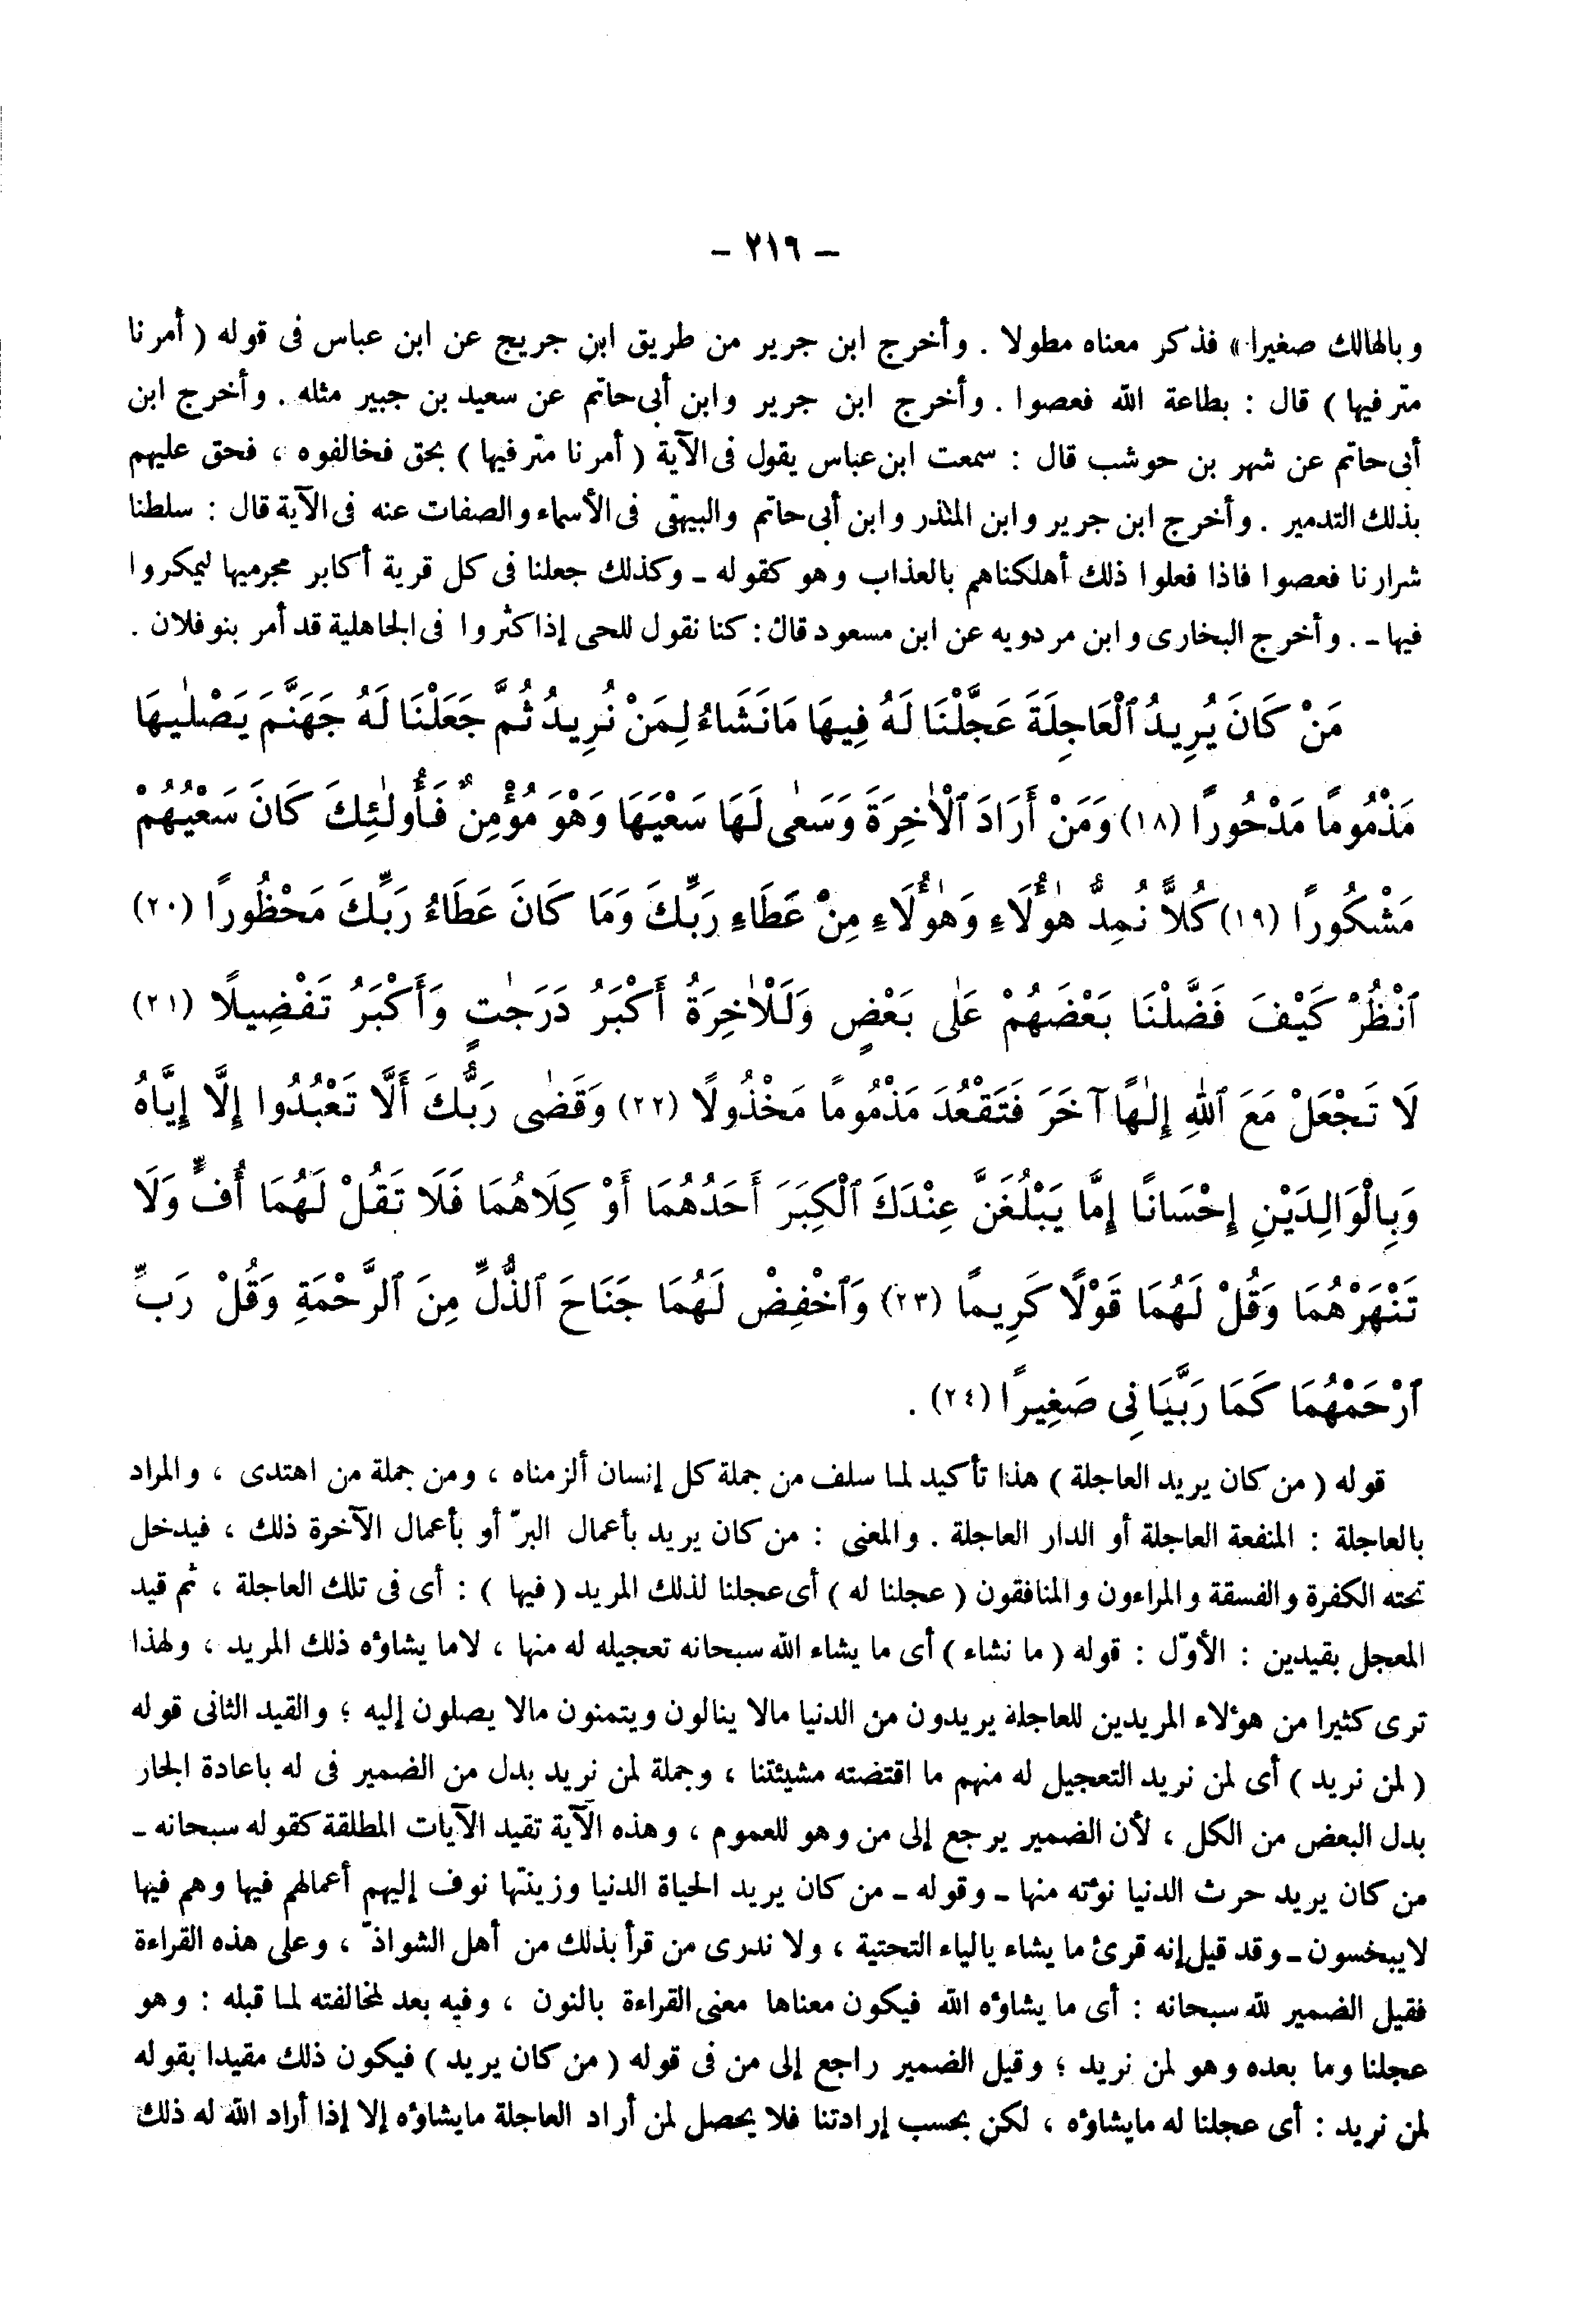 – ٢١٦ –
وبالهالك صغيرا» فذكر معناه مطولا . وأخرج ابن جرير من طريق ابن جريج عن ابن عباس فى قوله ( أمرنا
مترفيها ) قال : بطاعة الله فعصوا . وأخرج ابن جرير وابن أبى حاتم عن سعيد بن جبير مثله . وأخرج ابن
أبى حاتم عن شهر بن حوشب قال : سمعت ابن عباس يقول فى الآية ( أمرنا مترفيها ) بحق فخالفوه ، فحق عليهم
بذلك التدمير . وأخرج ابن جرير وابن المنذر وابن أبى حاتم والبيهقى فى الأسماء والصفات عنه فى الآية قال : سلطنا
شرارنا فعصوا فاذا فعلوا ذلك أهلكناهم بالعذاب وهو كقوله – وكذلك جعلنا فى كل قرية أكابر مجرميها ليمكروا
فيها – . وأخرج البخارى وابن مردويه عن ابن مسعود قال : كنا نقول للحى إذا كثروا فى الجاهلية قد أمر بنو فلان .
مَنْ كَانَ يُرِيدُ ٱلْعَاجِلَةَ عَجَّلْنَا لَهُ فِيهَا مَا نَشَاءُ لِمَنْ نُرِيدُ ثُمَّ جَعَلْنَا لَهُ جَهَنَّمَ يَصْلٰيهَا
مَذْمُومًا مَدْحُورًا (١٨) وَمَنْ أَرَادَ ٱلْاٰخِرَةَ وَسَعٰى لَهَا سَعْيَهَا وَهْوَ مُؤْمِنٌ فَأُولٰئِكَ كَانَ سَعْيُهُمْ
مَشْكُورًا (١٩) كُلاًّ نُمِدُّ هٰؤُلَاءِ وَهٰؤُلَاءِ مِنْ عَطَاءِ رَبِّكَ وَمَا كَانَ عَطَاءُ رَبِّكَ مَحْظُورًا (٢٠)
ٱنْظُرْ كَيْفَ فَضَّلْنَا بَعْضَهُمْ عَلٰى بَعْضٍ وَلَلْاٰخِرَةُ أَكْبَرُ دَرَجٰتٍ وَأَكْبَرُ تَفْضِيلًا (٢١)
لَا تَجْعَلْ مَعَ ٱللهِ إِلٰهًا آخَرَ فَتَقْعُدَ مَذْمُومًا مَخْذُولًا (٢٢) وَقَضٰى رَبُّكَ أَلَّا تَعْبُدُوا إِلَّا إِيَّاهُ
وَبِالْوَالِدَيْنِ إِحْسَانًا إِمَّا يَبْلُغَنَّ عِنْدَكَ ٱلْكِبَرَ أَحَدُهُمَا أَوْ كِلَاهُمَا فَلَا تَقُلْ لَهُمَا أُفٍّ وَلَا
تَنْهَرْهُمَا وَقُلْ لَهُمَا قَوْلًا كَرِيمًا (٢٣) وَٱخْفِضْ لَهُمَا جَنَاحَ ٱلذُّلِّ مِنَ ٱلرَّحْمَةِ وَقُلْ رَبِّ
ٱرْحَمْهُمَا كَمَا رَبَّيَانِى صَغِيرًا (٢٤) .
قوله ( من كان يريد العاجلة ) هذا تأكيد لما سلف من جملة كل إنسان ألزمناه ، ومن جملة من اهتدى ، والمراد
بالعاجلة : المنفعة العاجلة أو الدار العاجلة . والمعنى : من كان يريد بأعمال البرّ أو بأعمال الآخرة ذلك ، فيدخل
تحته الكفرة والفسقة والمراءون والمنافقون ( عجلنا له ) أى عجلنا لذلك المريد ( فيها ) : أى فى تلك العاجلة ، ثم قيد
المعجل بقيدين : الأوّل : قوله ( ما نشاء ) أى ما يشاء الله سبحانه تعجيله له منها ، لاما يشاؤه ذلك المريد ، ولهذا
ترى كثيرا من هؤلاء المريدين للعاجلة يريدون من الدنيا مالا ينالون ويتمنون مالا يصلون إليه ؛ والقيد الثانى قوله
( لمن نريد ) أى لمن نريد التعجيل له منهم ما اقتضته مشيئتنا ، وجملة لمن نريد بدل من الضمير فى له باعادة الجار
بدل البعض من الكل ، لأن الضمير يرجع إلى من وهو للعموم ، وهذه الآية تقيد الآيات المطلقة كقوله سبحانه –
من كان يريد حرث الدنيا نؤته منها – وقوله – من كان يريد الحياة الدنيا وزينتها نوف إليهم أعمالهم فيها وهم فيها
لايبخسون – وقد قيل إنه قرئ ما يشاء يالياء التحتية ، ولا ندرى من قرأ بذلك من أهل الشواذّ ، وعلى هذه القراءة
فقيل الضمير لله سبحانه : أى ما يشاؤه الله فيكون معناها معنى القراءة بالنون ، وفيه بعد لمخالفته لما قبله : وهو
عجلنا وما بعده وهو لمن نريد ؛ وقيل الضمير راجع إلى من فى قوله ( من كان يريد ) فيكون ذلك مقيدا بقوله
لمن نريد : أى عجلنا له مايشاؤه ، لكن بحسب إرادتنا فلا يحصل لمن أراد العاجلة مايشاؤه إلا إذا أراد الله له ذلك